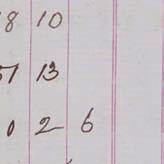 8 10
51 13
0 2 6